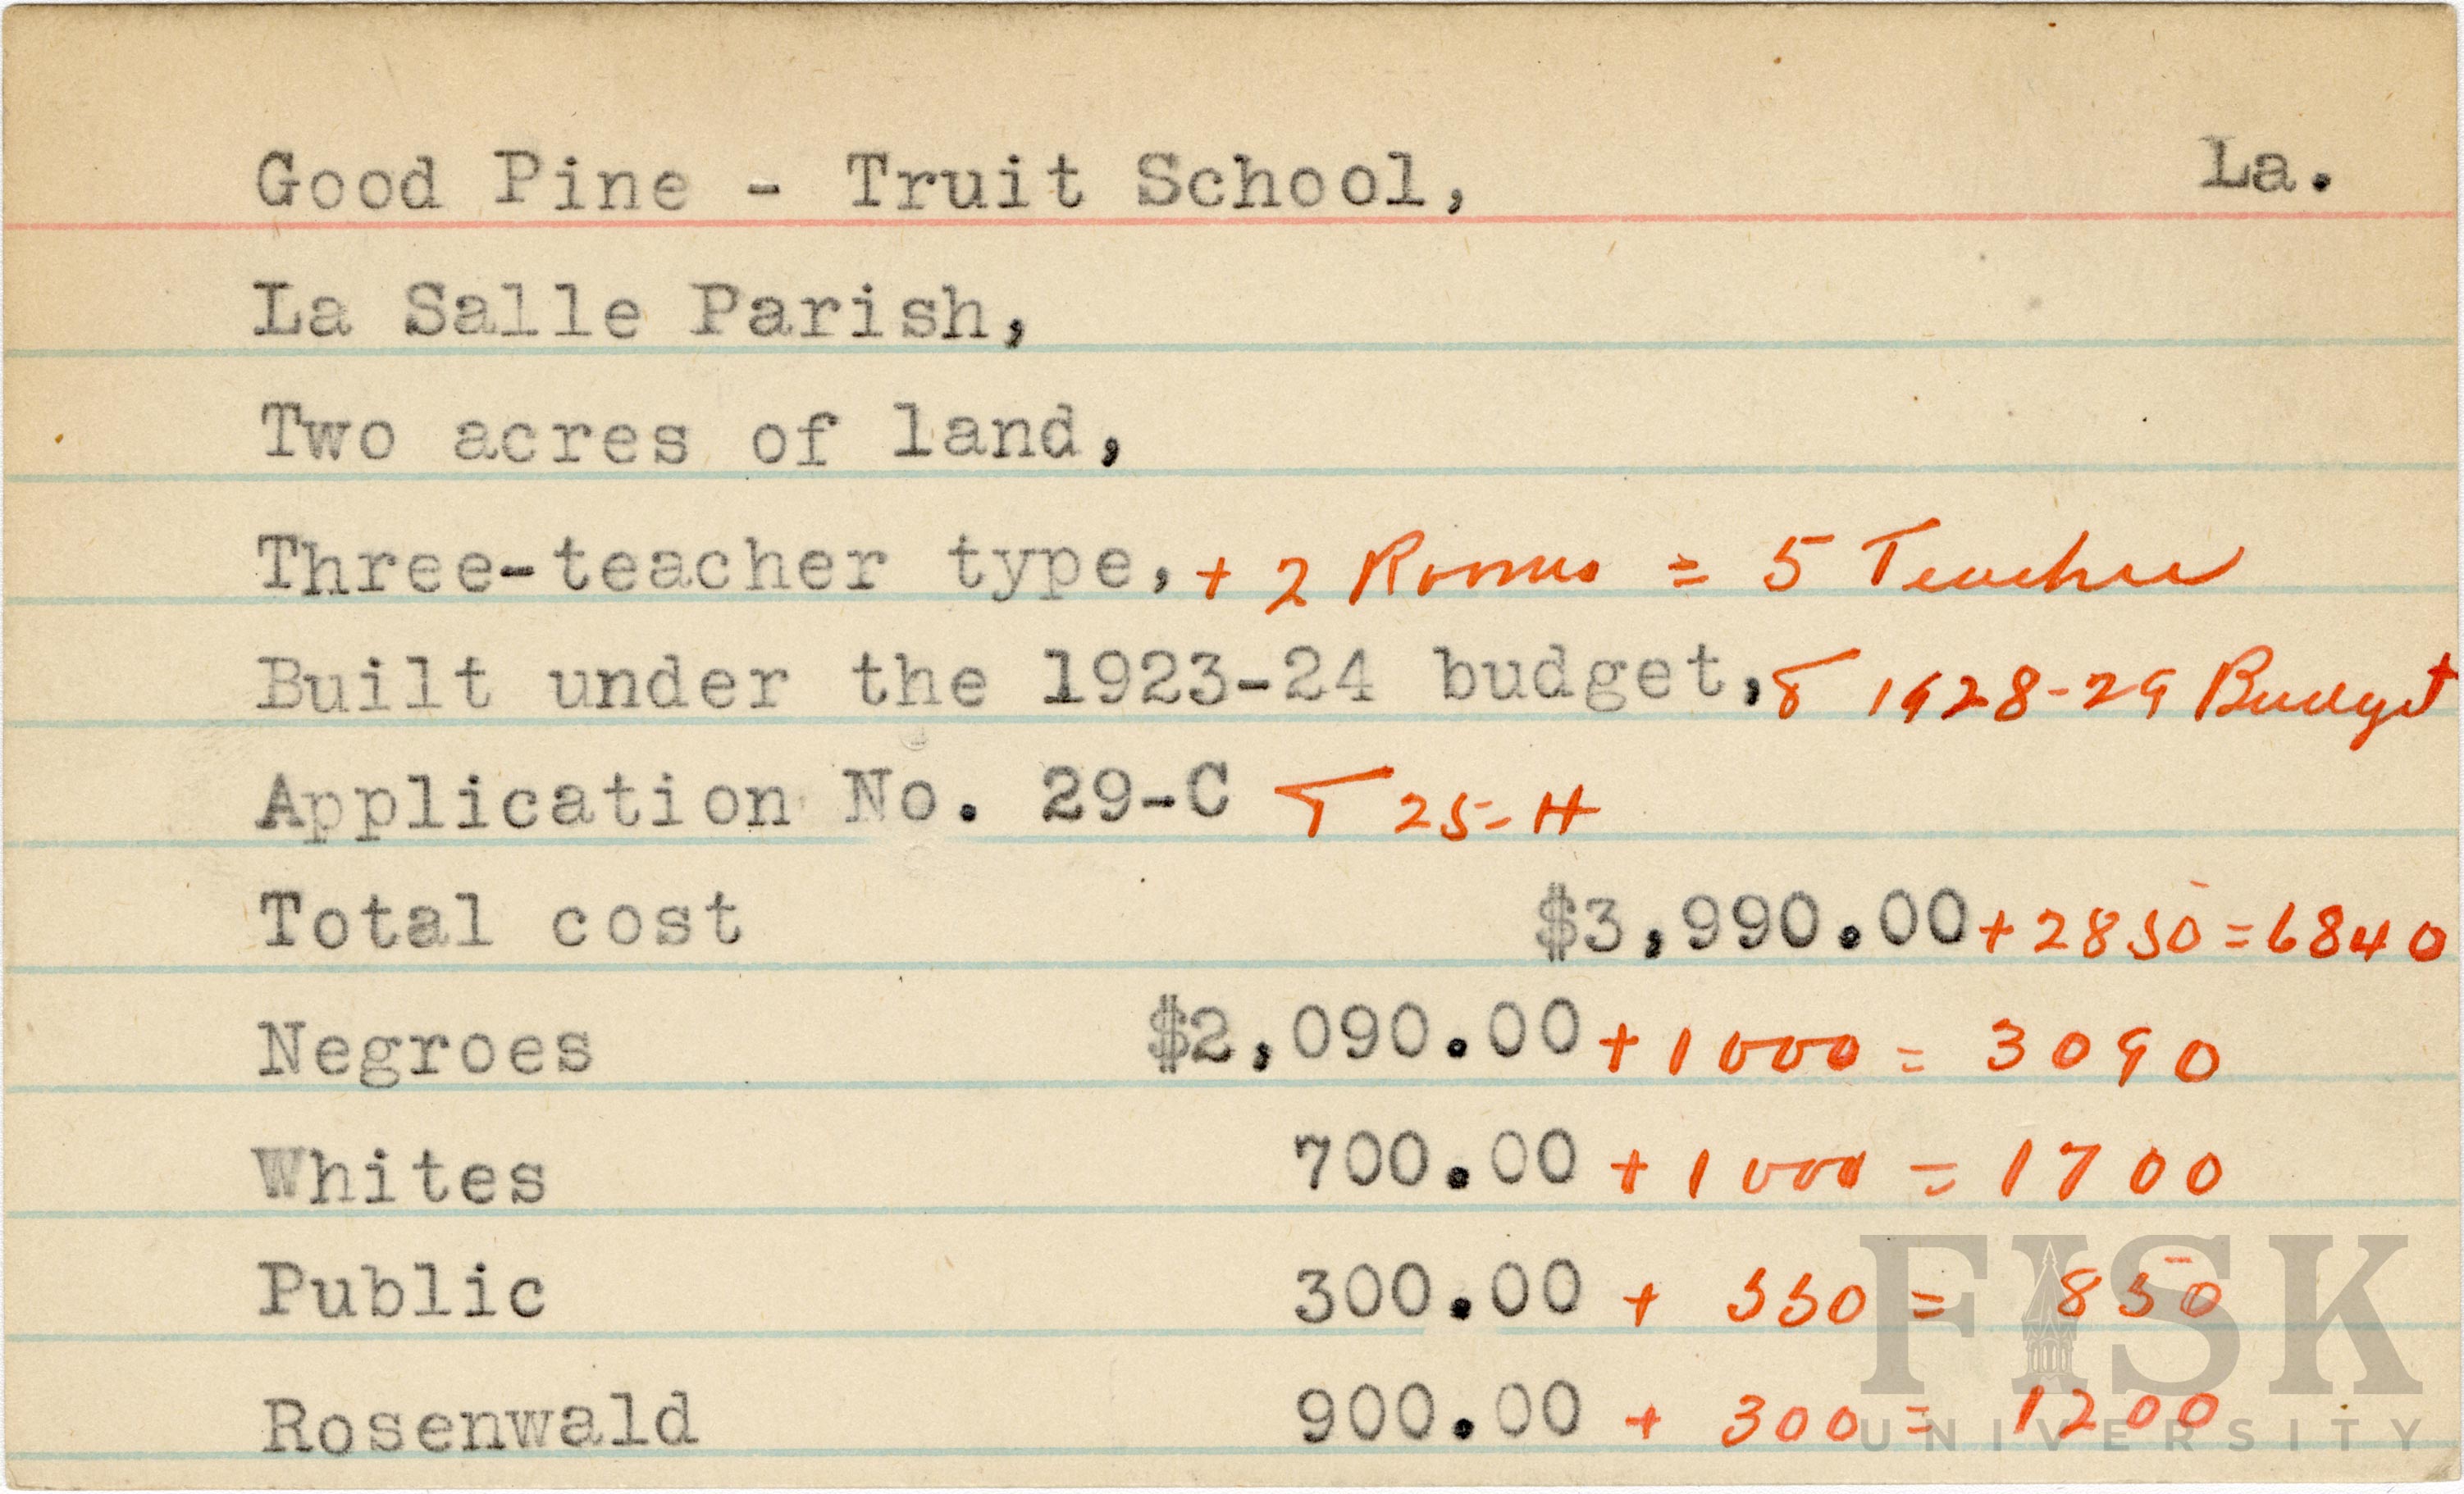 Good Pine - Truit School, La.
La Salle Parish,
Two acres of land,
Three-teacher type, + 2 Rooms = 5 Teacher
Built under the 1923-24 budget, & 1928-29 Budget
Application No. 29-C & 25-H
Total cost $3,990.00 + 2850 = 6840
Negroes $2,090.00 + 1000 = 3090
Whites 700.00 + 1000 = 1700
Public 300.00 + 550 = 850
Rosenwald 900.00 + 300 = 1200
FISK
UNIVERSITY